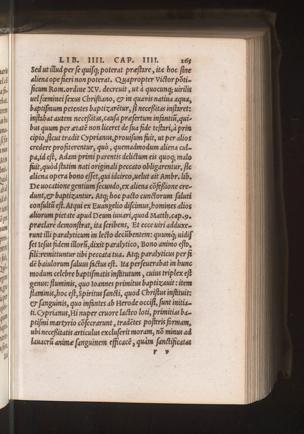 LIB. IIII. CAP. IIII. 265
Sed ut illud per se quisq; poterat præstare, ita hoc sine
aliena ope fieri non poterat. Quapropter Victor põti-
ficum Rom. ordine XV. decreuit, ut à quocunq; uirilis
uel fœminei sexus Christiano, & in quauis natiua aqua,
baptismum petentes baptizarẽtur, si necessitas instaret:
instabat autem necessitas, causa præsertim infantiũ, qui-
bus quum per ætatẽ non liceret de sua fide testari, à prin
cipio, sicut tradit Cyprianus, prouisum fuit, ut per alios
credere profiterentur, quò, quemadmodum aliena cul-
pa, id est, Adam primi parentis delictum eis quoq; malo
fuit, quòd statim nati originali peccato obligarentur, sic
aliena opera bono esset, qui idcirco, uelut ait Ambr. lib.
De uocatione gentium secundo, ex aliena cõfessione cre-
dunt, & baptizantur. Atq; hoc pacto cunctorum saluti
consultũ est. Atqui ex Euangelio discimus, homines alios
aliorum pietate apud Deum iuuari, quod Matth. cap. 9.
præclare demonstrat, ita scribens, Et ecce uiri adduxe-
runt illi paralyticum in lecto decũbentem: quumq; uidis
set Iesus fidem illorũ, dixit paralytico, Bono animo esto,
fili: remittuntur tibi peccata tua. Atq; paralyticus per fi
dẽ baiulorum saluus factus est. Ita perseuerabat in hunc
modum celebre baptismatis institutum, cuius triplex est
genus: fluminis, quo Ioannes primitus baptizauit: item
flaminis, hoc est, Spiritus sancti, quod Christus instituit:
& sanguinis, quo infantes ab Herode occisi, sunt initia-
ti. Cyprianus, Hi nuper cruore lacteo loti, primitias ba-
ptismi martyrio cõsecrarunt, tradẽtes posteris firmam,
ubi necessitatis articulus excluserit moram, nõ minus ad
lauacrũ animæ sanguinem efficacẽ, quàm sanctificatas